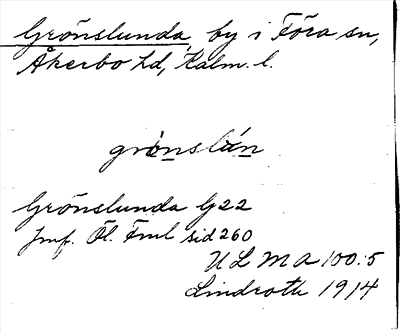 Grönslunda, by i Föra sn,
Åkerbo hd, Kalm. l.
grönslún
Grönslunda G22
Jmf. Öl. Fml sid 260
ULMA 100:5
Lindroth 1914